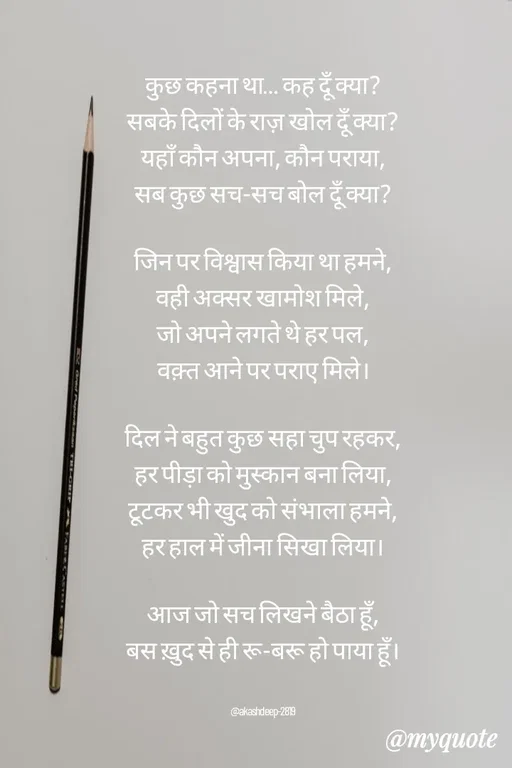 कुछ कहना था... कह दूँ क्या?
सबके दिलों के राज़ खोल दूँ क्या?
यहाँ कौन अपना, कौन पराया,
सब कुछ सच-सच बोल दूँ क्या?
जिन पर विश्वास किया था हमने,
वही अक्सर खामोश मिले,
जो अपने लगते थे हर पल,
वक़्त आने पर पराए मिले।
दिल ने बहुत कुछ सहा चुप रहकर,
हर पीड़ा को मुस्कान बना लिया,
टूटकर भी खुद को संभाला हमने,
हर हाल में जीना सिखा लिया।
आज जो सच लिखने बैठा हूँ,
बस ख़ुद से ही रू-बरू हो पाया हूँ।
@akashdeep-2819
@myquote